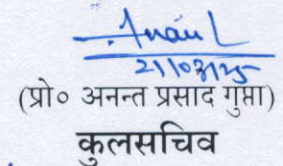 21/03/25
(प्रो० अनन्त प्रसाद गुप्ता)
कुलसचिव